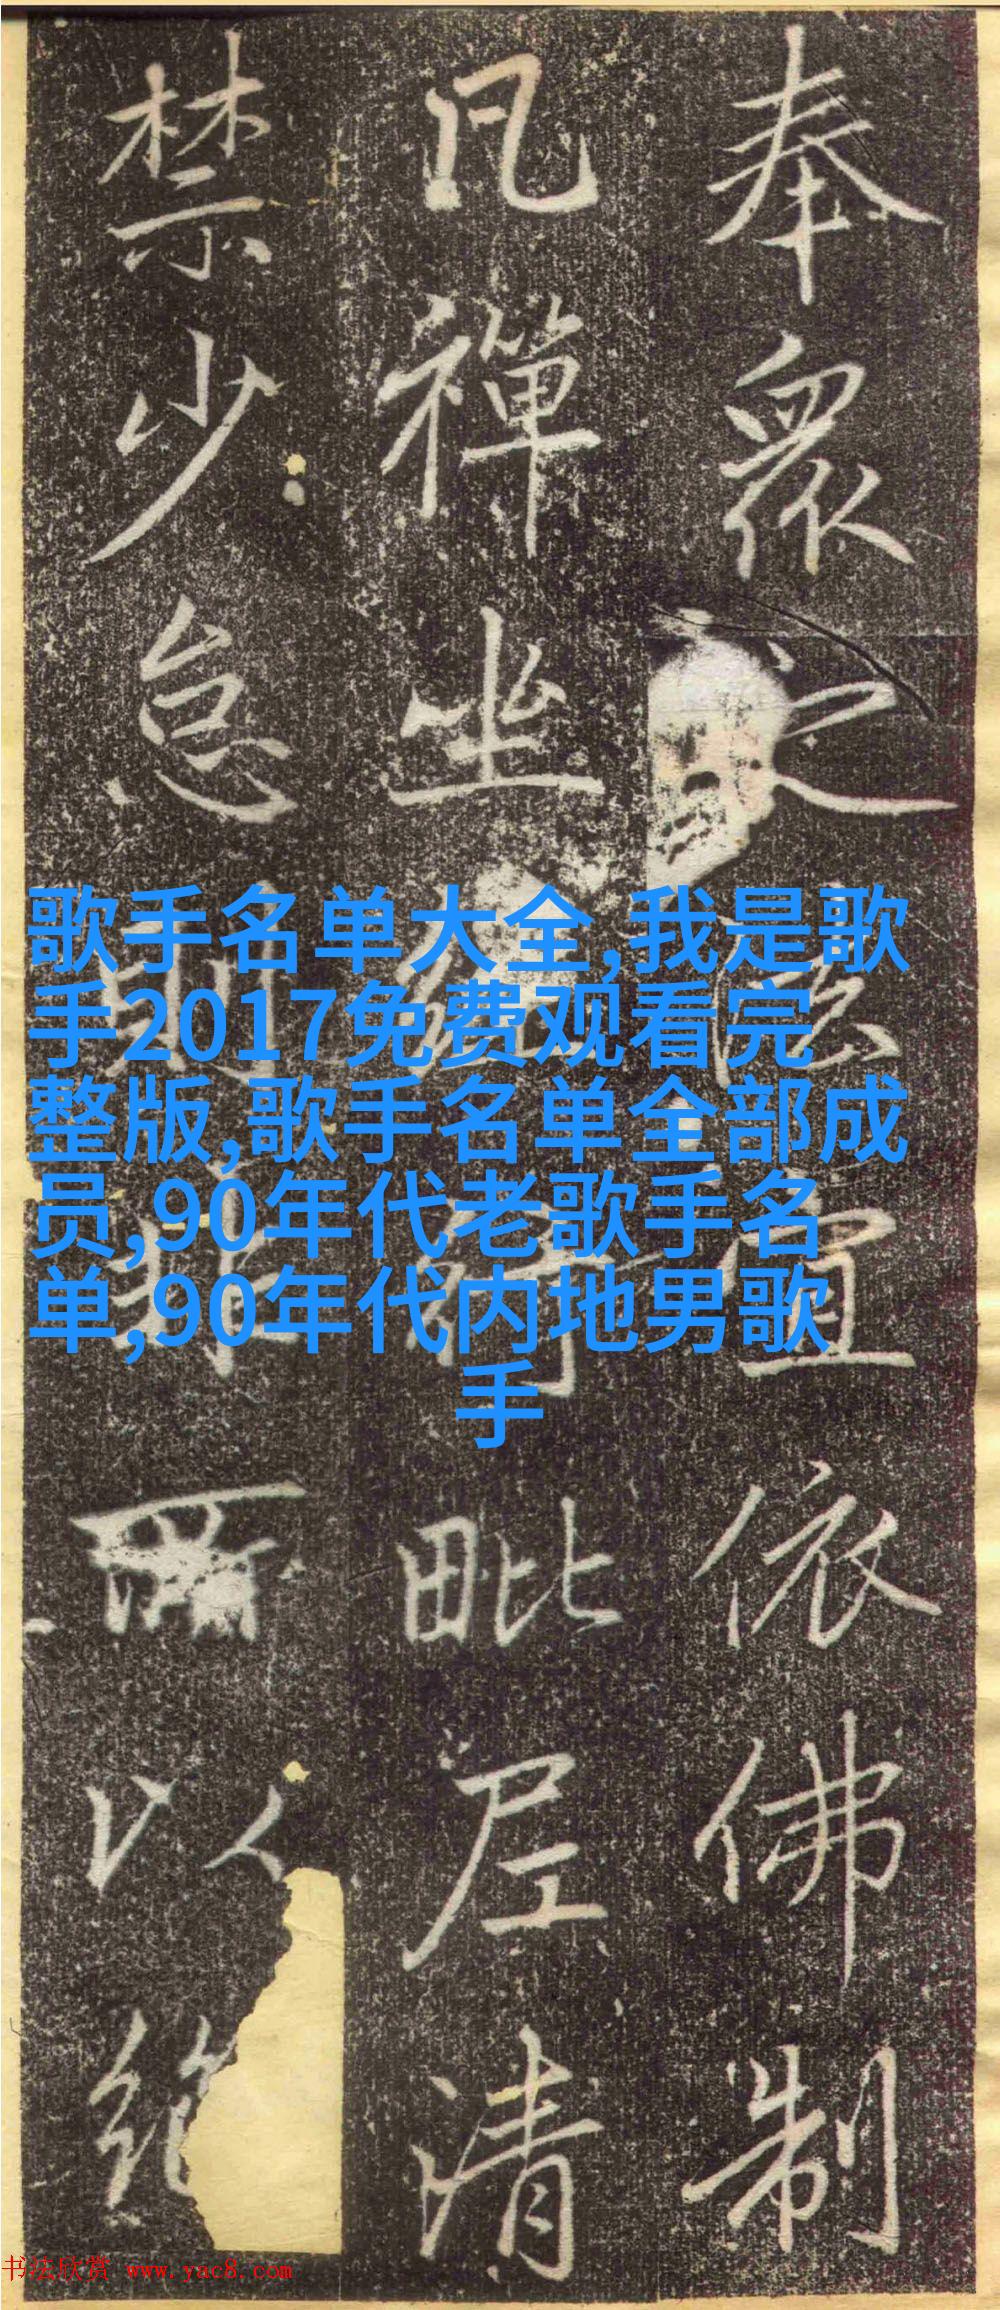 奉眾宜依佛制
凡禪坐行毗尼清
禁少怠則非所以紹
歌手名单大全,我是歌
手2017免费观看完
整版,歌手名单全部成
员,90年代老歌手名
单,90年代内地男歌
手
书法欣赏 www.yac8.com